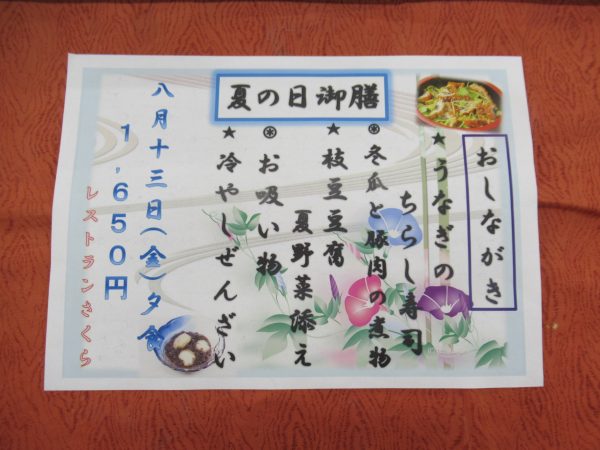 夏の日御膳
おしながき
★うなぎの
ちらし寿司
⊛冬瓜と豚肉の煮物
★枝豆豆腐
夏野菜添え
⊛お吸い物
★冷やしぜんざい
八月十三日(金)夕食
1,650円
レストランさくら